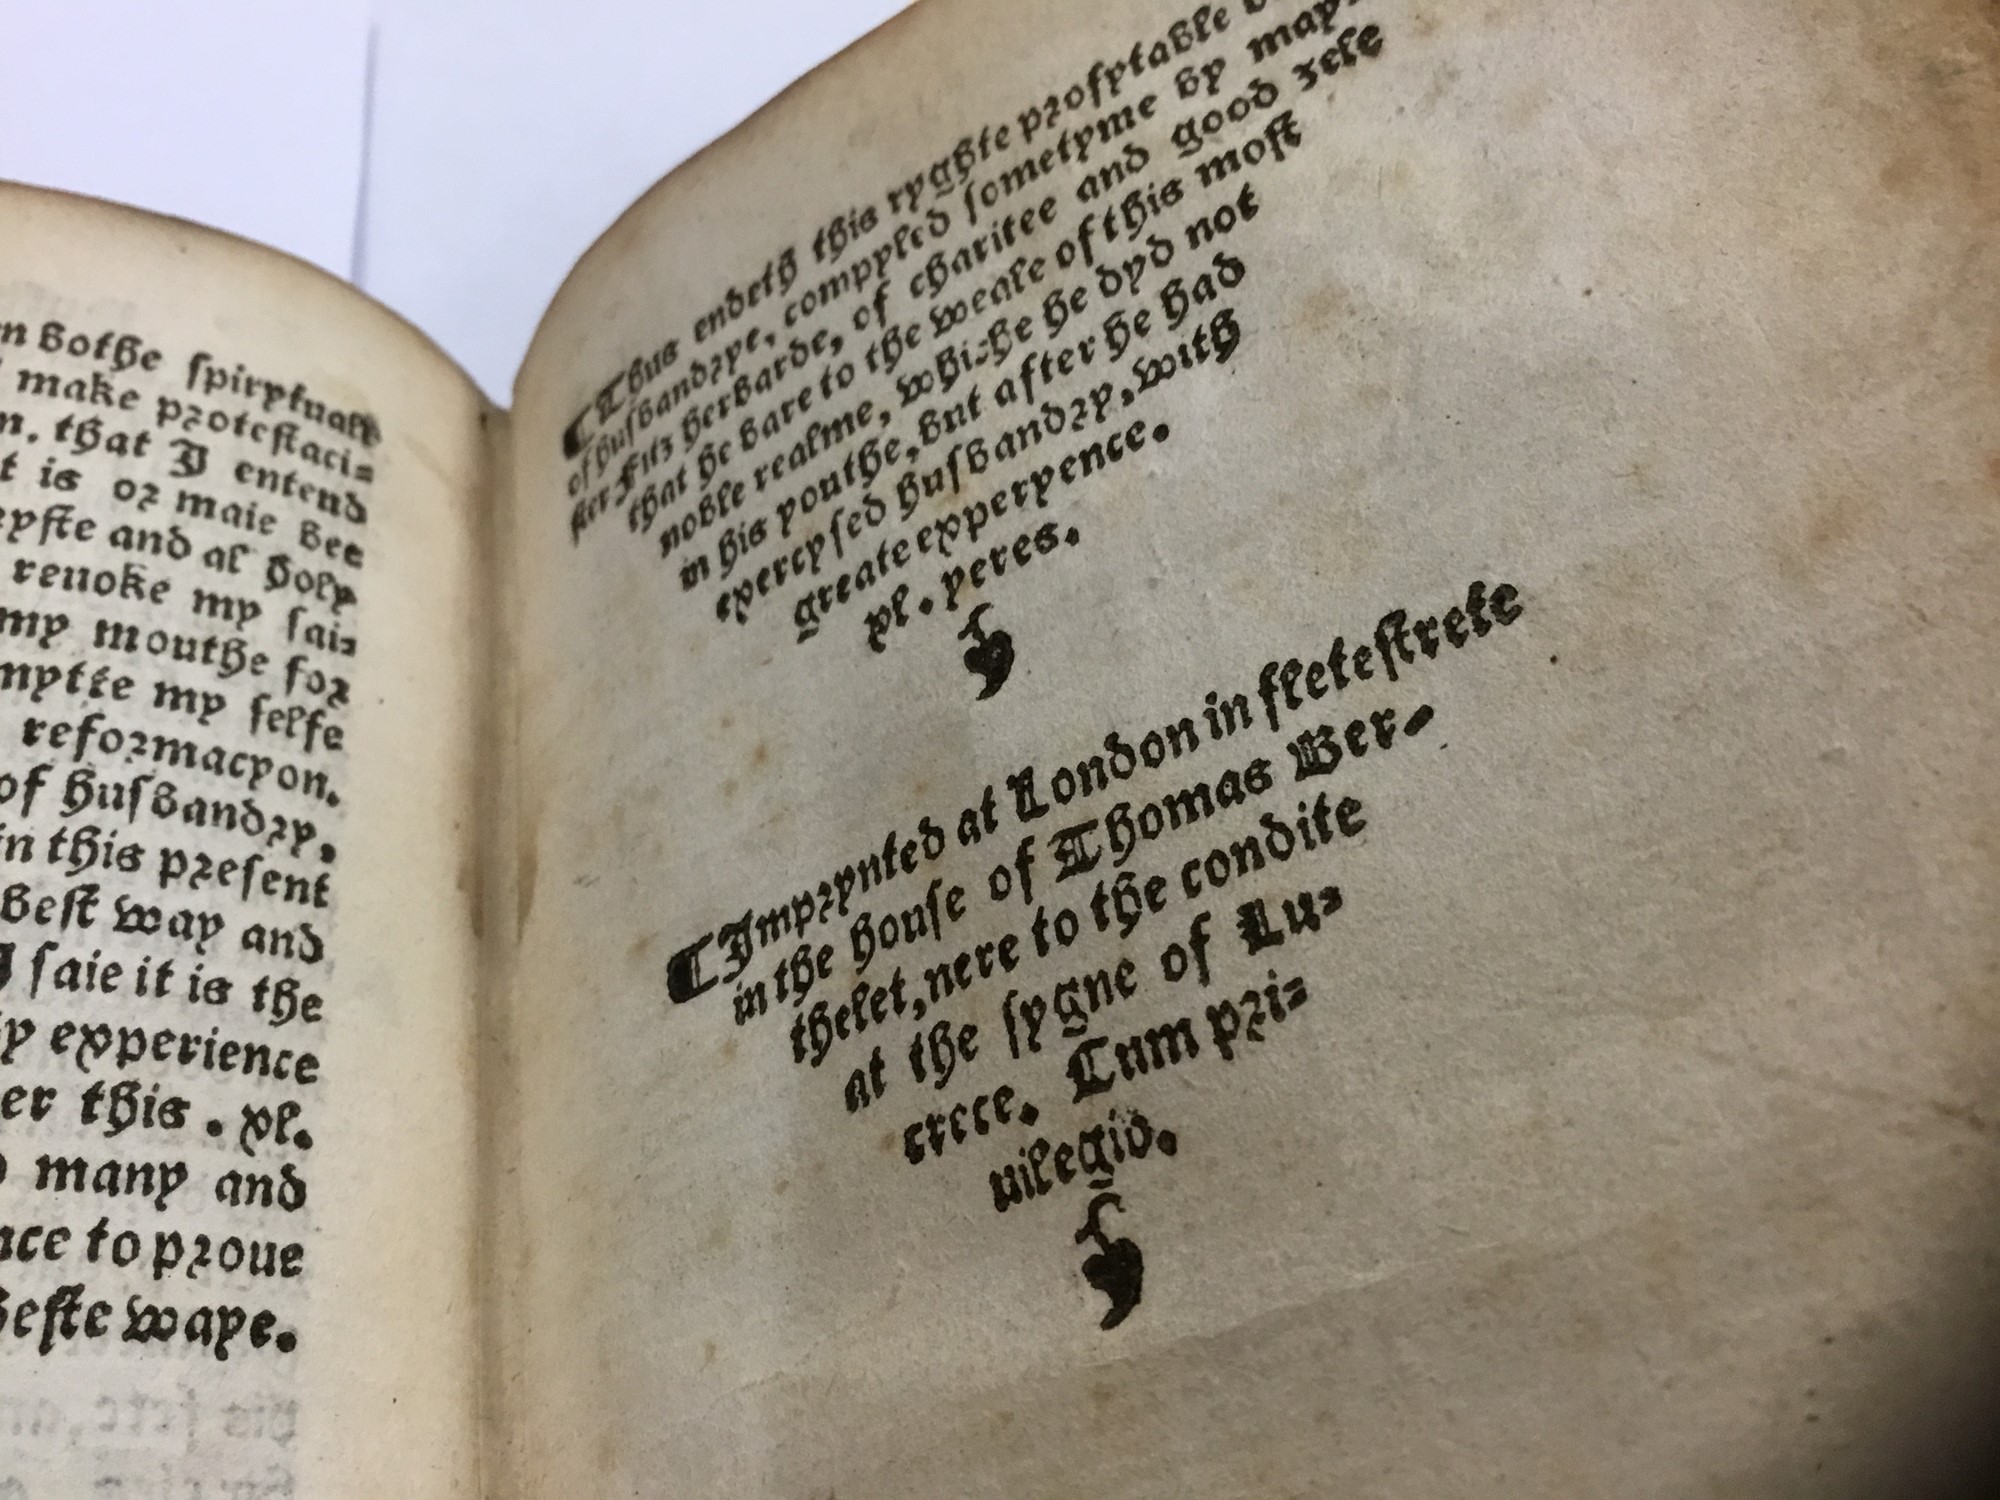 n bothe ſpirytuall
make proteſtaci-
n. that I entend
t is or maie bee
and al holy
reuoke my ſai-
my mouthe for
my ſelfe
reformacyon.
of huſbandry,
in this preſent
beſt way and
I ſaie it is the
experience
er this . xl.
many and
to proue
beſte waye.
¶Thus endeth this ryghte profytable
of huſbandrye, compyled ſometyme by may-
ſter Fitz herbarde, of charitee and good zele
that he bare to the weale of this moſt
noble realme, whiche he dyd not
in his youthe, but after he had
exercyſed huſbandry, with
greate experyence.
xl. yeres.
¶Imprynted at London in fleteſtrete
in the houſe of Thomas Ber-
thelet, nere to the condite
at the ſygne of Lu-
crece. Cum pri-
uilegio.